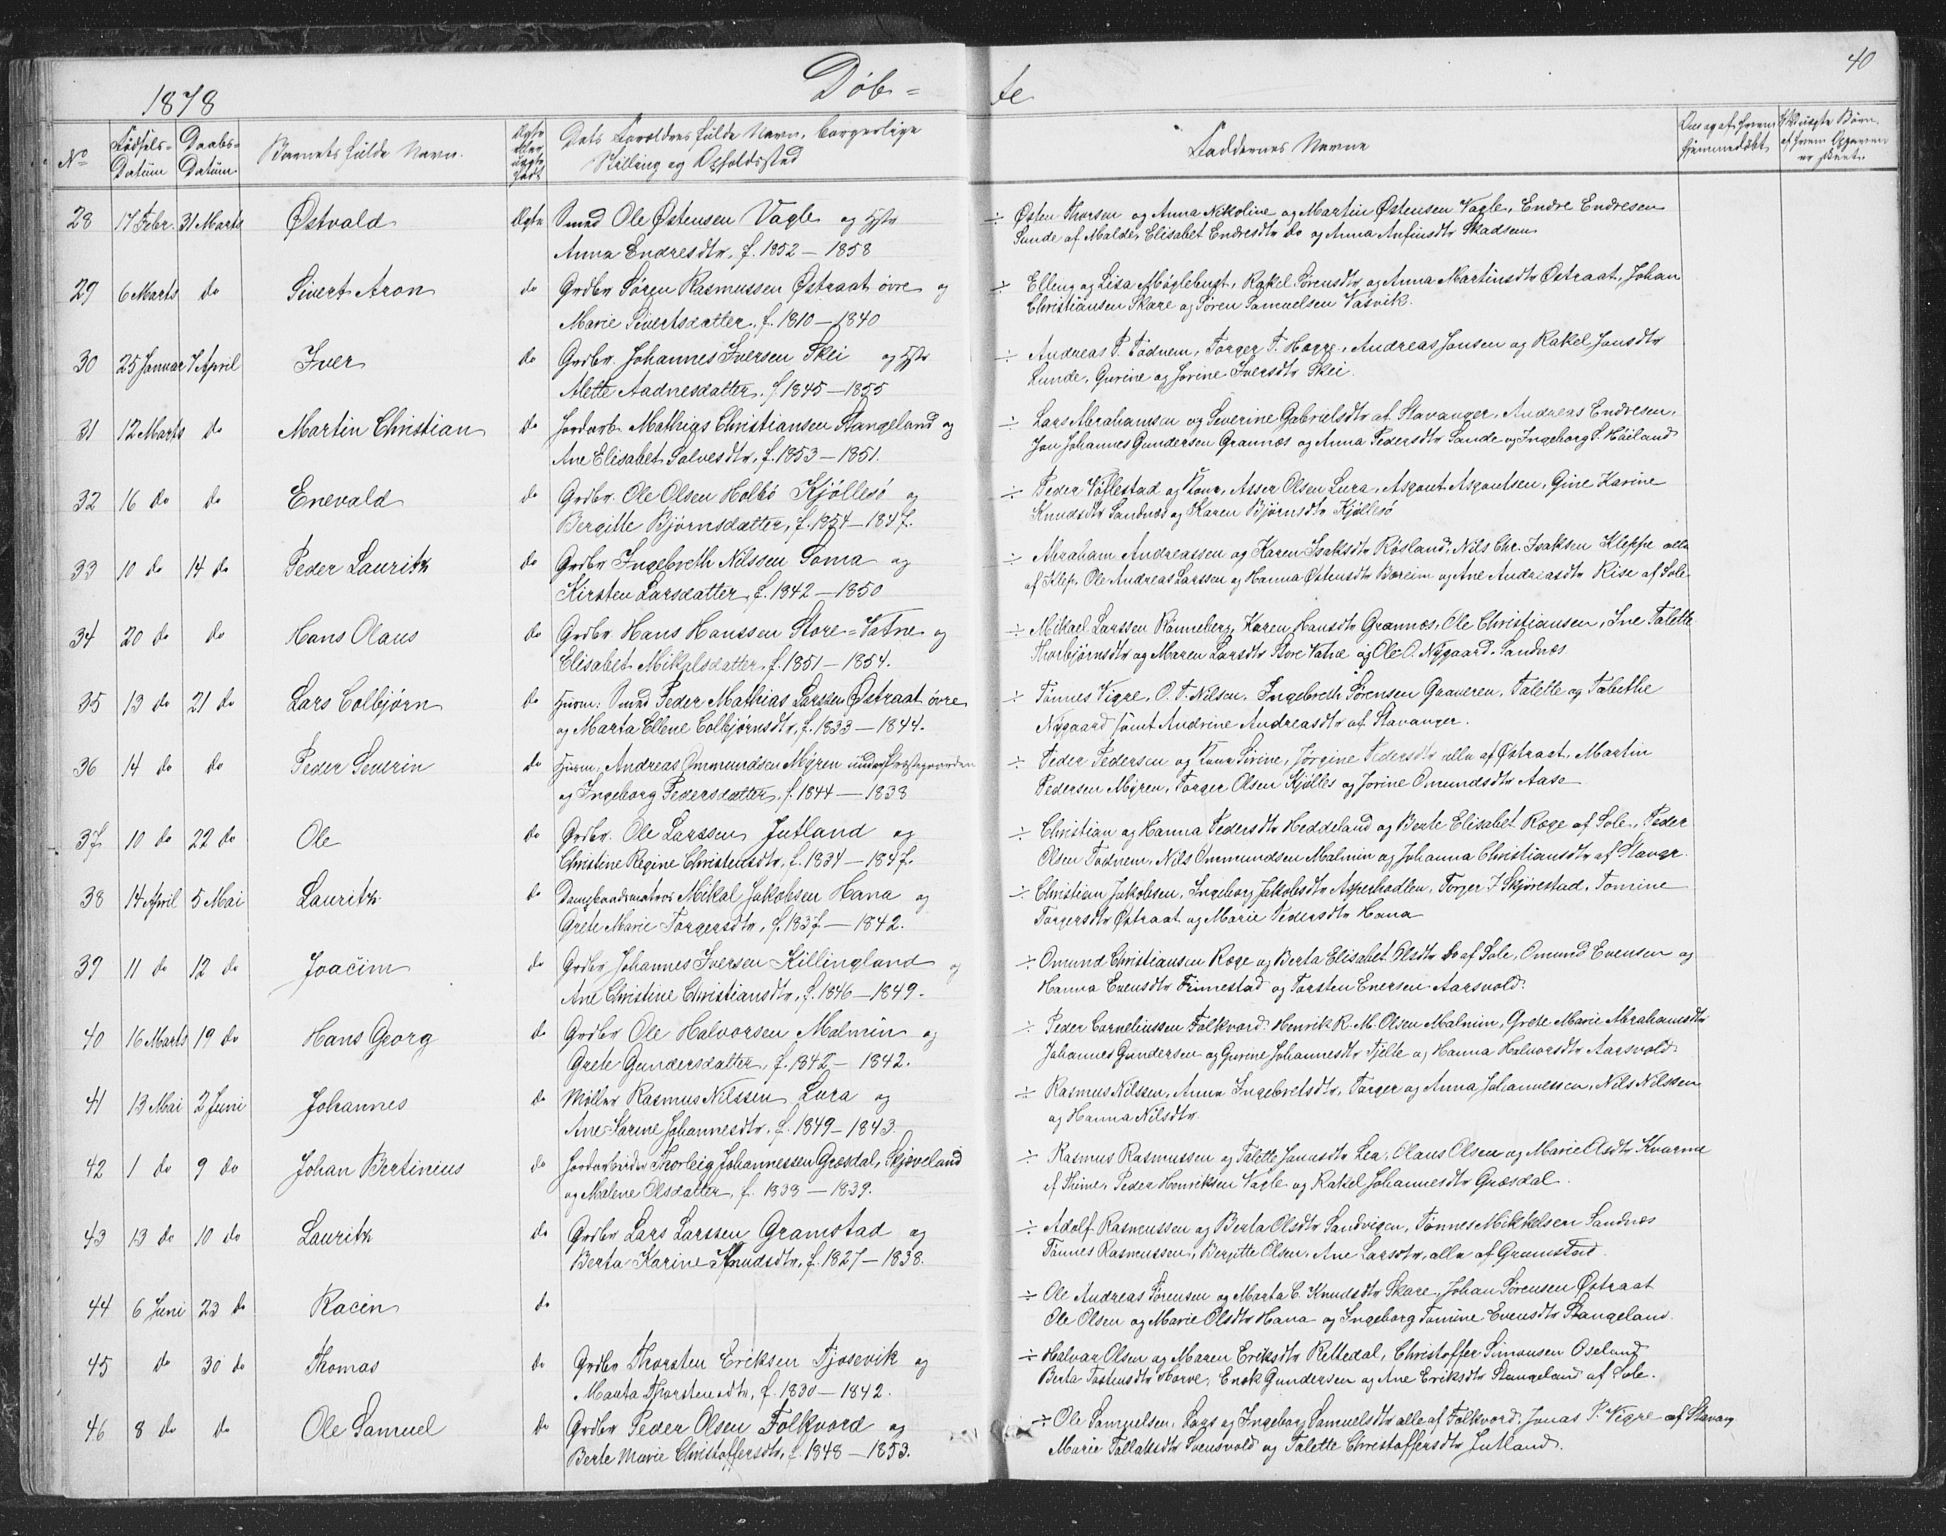 1878
Døb=
te
40
No
Fødsels=
Datum
Daabs=
Datum
Barnets fulde Navn.
Ægte
eller
uægte
født
Dets Forældres fulde Navn, borgerlige
Stilling og Opholdssted
Faddernes Navne
28 17 Febr. 31 Marts Østvald Ægte Smed Ole Østensen Vagle og Hstr
Anna Endresdtr. f. 1852 — 1858
÷ Østen Thorsen og Anna Nikoline og Martin Østensen Vagle, Endre Endresen
Sunde af Malde, Elisabet Endresdtr do og Anna Anfinsdtr Skadsem
29 6 Marts do Sivert Aron do Grdbr Søren Rasmussen Østraat øvre og
Marie Sivertsdatter. f. 1810 — 1840
÷ Elling og Lisa Møglebugt, Rakel Sørensdtr og Anna Martinsdtr Østraat, Johan
Christiansen Skare og Søren Samuelsen Vasvik.
30 25 Januar 7 April Iver do Grdbr. Johannes Iversen Skei og Hstr
Alette Aadnesdatter. f 1845 — 1855
÷ Andreas T. Tødnem, Torger T. Hogge, Andreas Jonsen og Rakel Jonsdtr
Lunde, Gurine og Jorine Iversdtr Skei.
31 12 Marts do Martin Christian do Jordarb. Mathias Christiansen Stangeland og
Ane Elisabet Salvesdtr, f. 1853 — 1851.
÷ Lars Abrahamsen og Severine Gabrielsdtr af Stavanger, Andreas Endresen,
Jon Johannes Gundersen Grannæs og Anna Pedersdtr Sande og Ingeborg S. Høiland
32 16 do do Enevald do Grdbr. Ole Olsen Holbø Kjøllesø og
Bergitte Bjørnsdatter, f. 1854 — 1847.
÷ Peder Vøllestad og Kone, Asser Olsen Lura, Asgaut Asgautsen, Gine Karine
Knudsdtr Sandnæs og Karen Bjørnsdtr Kjøllesø
33 10 do 14 do Peder Lauritz do Grdbr Ingebreth Nilssen Soma og
Kirsten Larsdatter, f. 1842 — 1850
÷ Abraham Andreassen og Karen Isaksdtr Røsland, Nils Chr. Isaksen Kleppe alle
af Klep. Ole Andreas Larssen og Hanna Østensdtr Bæreim og Ane Andreasdtr Rise af Sole.
34 20 do do Hans Olaus do Grdbr Hans Hanssen Store=Vatne og
Elisabet Mikalsdatter, f. 1851 — 1854.
÷ Mikael Larssen Rønneberg, Karen Hansdtr Grannæs, Ole Christiansen, Ine Talette
Thorbjørnsdtr og Maren Larsdtr Store Vatne og Ole O. Nygaard Sandnæs
35 13 do 21 do Lars Colbjørn do Husm: Smed Peder Mathias Larssen Østraat øvre
og Marta Ellene Colbjørnsdtr, f. 1833 — 1844.
÷ Tønnes Vigre, O. T. Nilsen, Ingebreth Sørensen Graveren, Talette og Tabethe
Nygaard samt Andrine Andreasdtr af Stavanger.
36 14 do do Peder Severin do Husm. Andreas Ommundsen Myren under Prestegaarden
og Ingeborg Pedersdatter, f. 1844 — 1838
÷ Peder Pedersen og Kone Sirine, Jørgine Pedersdtr alle af Østraat, Martin
Pedersen Myren, Torger Olsen Kjølles og Jorine Omundsdtr Aase
37 10 do 22 do Ole do Grdbr. Ole Larssen Jutland og
Christine Regine Christensdtr, f. 1834 — 1847.
÷ Christian og Hanna Pedersdtr Heddeland og Berte Elisabet Røge af Sole, Peder
Olsen Tødnem, Nils Ommundsen Malmin og Johanna Christiansdtr af Stavgr.
38 14 April 5 Mai Lauritz do Mikal Jakobsen Hana og
Grete Marie Torgersdtr, f. 1837 — 1842.
÷ Christian Jakobsen, Ingeborg Jakobsdtr Asperhadlen, Torger J Skjørestad, Tomine
Torgersdtr Østraat og Marie Pedersdtr Hana
39 11 do 12 do Joacim do Grdbr. Johannes Iversen Killingland og
Ane Christine Christiansdtr, f. 1846 — 1849.
÷ Omund Christiansen Røge og Berta Elisabet Olsdtr do af Sole, Omund Evensen og
Hanna Evensdtr Finnestad og Torsten Enersen Aarsvold.
40 16 Marts 19 do Hans Georg do Grdbr Ole Halvorsen Malmin og
Grete Gundersdatter, f. 1842 — 1842.
÷ Peder Corneliussen Folkvord. Henrik R. M. Olsen Malmin, Grete Marie Abrahamsdtr
Johannes Gundersen og Gurine Johannesdtr Tjelte og Hanna Halvorsdtr Aarsvold
41 13 Mai 2 Juni Johannes do Møller Rasmus Nilssen Lura og
Ane Karine Johannesdtr. f. 1849 — 1843
÷ Rasmus Nilssen, Anna Ingebretsdtr, Torger og Anna Johannessen, Nils Nilssen
og Hanna Nilsdtr.
42 1 do 9 do Johan Bertinius do Jordarbeider Thorleig Johannessen Græsdal, Skjæveland
og Malene Olsdatter, f. 1833 — 1839.
÷ Rasmus Rasmussen og Talette Jonasdtr Lea, Olaus Olsen og Marie Olsdtr Kvarme
af Thime, Peder Henriksen Vagle og Rakel Johannesdtr Græsdal.
43 13 do 10 do Lauritz do Grdbr Lars Larssen Gramstad og
Berta Karine Knudsdtr, f. 1827 — 1838.
÷ Adolf Rasmussen og Berta Olsdtr Sandvigen, Tønnes Mikkelsen Sandnæs
Tønnes Rasmussen, Bergitte Olsen, Ane Larsdtr, alle af Gramstad.
44 6 Juni 23 do Racin do
÷ Ole Andreas Sørensen og Marta C. Knudsdtr Skare, Johan Sørensen Østraat
Ole Olsen og Marie Olsdtr Hana og Ingeborg Tomine Evensdtr Stangeland.
45 do 30 do Thomas do Grdbr Thorsten Eriksen Tjosevik og
Marta Thorstensdtr, f. 1830 — 1842.
÷ Halvar Olsen og Maren Eriksdtr Rettedal, Christoffer Simonsen Oseland
Berta Tostensdtr Horve, Enok Gundersen og Ane Eriksdtr Stangeland af Sole.
46 8 do do Ole Samuel do Grdbr Peder Olsen Folkvord og
Berte Marie Christoffersdtr, f. 1848 — 1853.
÷ Ole Samuelsen, Lars og Ingeborg Samuelsdtr alle af Folkvord, Jonas P. Vigre af Stavang
Marie Tollaksdtr Svensvold og Talette Christoffersdtr Jutland.